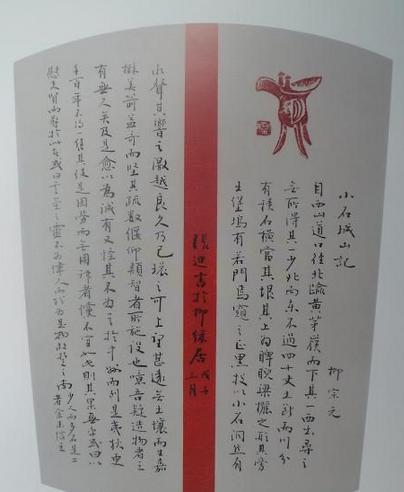 小石城山記
柳宗元
自西山道口徑北踰黃茅嶺而下其一西出尋之
無所得其一少北而東不過四十丈土斷而川分
有積石橫當其垠其上為睥睨梁欐之形其旁
出堡塢有若門焉窺之正黑投以小石洞然有
水聲其響之激越良久乃已環之可上望甚遠無土壤而生嘉
樹美箭益奇而堅其疏數偃仰類智者所施設也噫吾疑造物者之
有無久矣及是愈以為誠有又怪其不為之於中州而列是夷狄更
千百年不得一售其伎是固勞而無用神者儻不宜如是則其果無乎或曰以
慰夫賢而辱於此者或曰其氣之靈不為偉人而獨為是物故楚之南少人而多石是二者余未信之
張迎書於柳緣居
戊子
三月